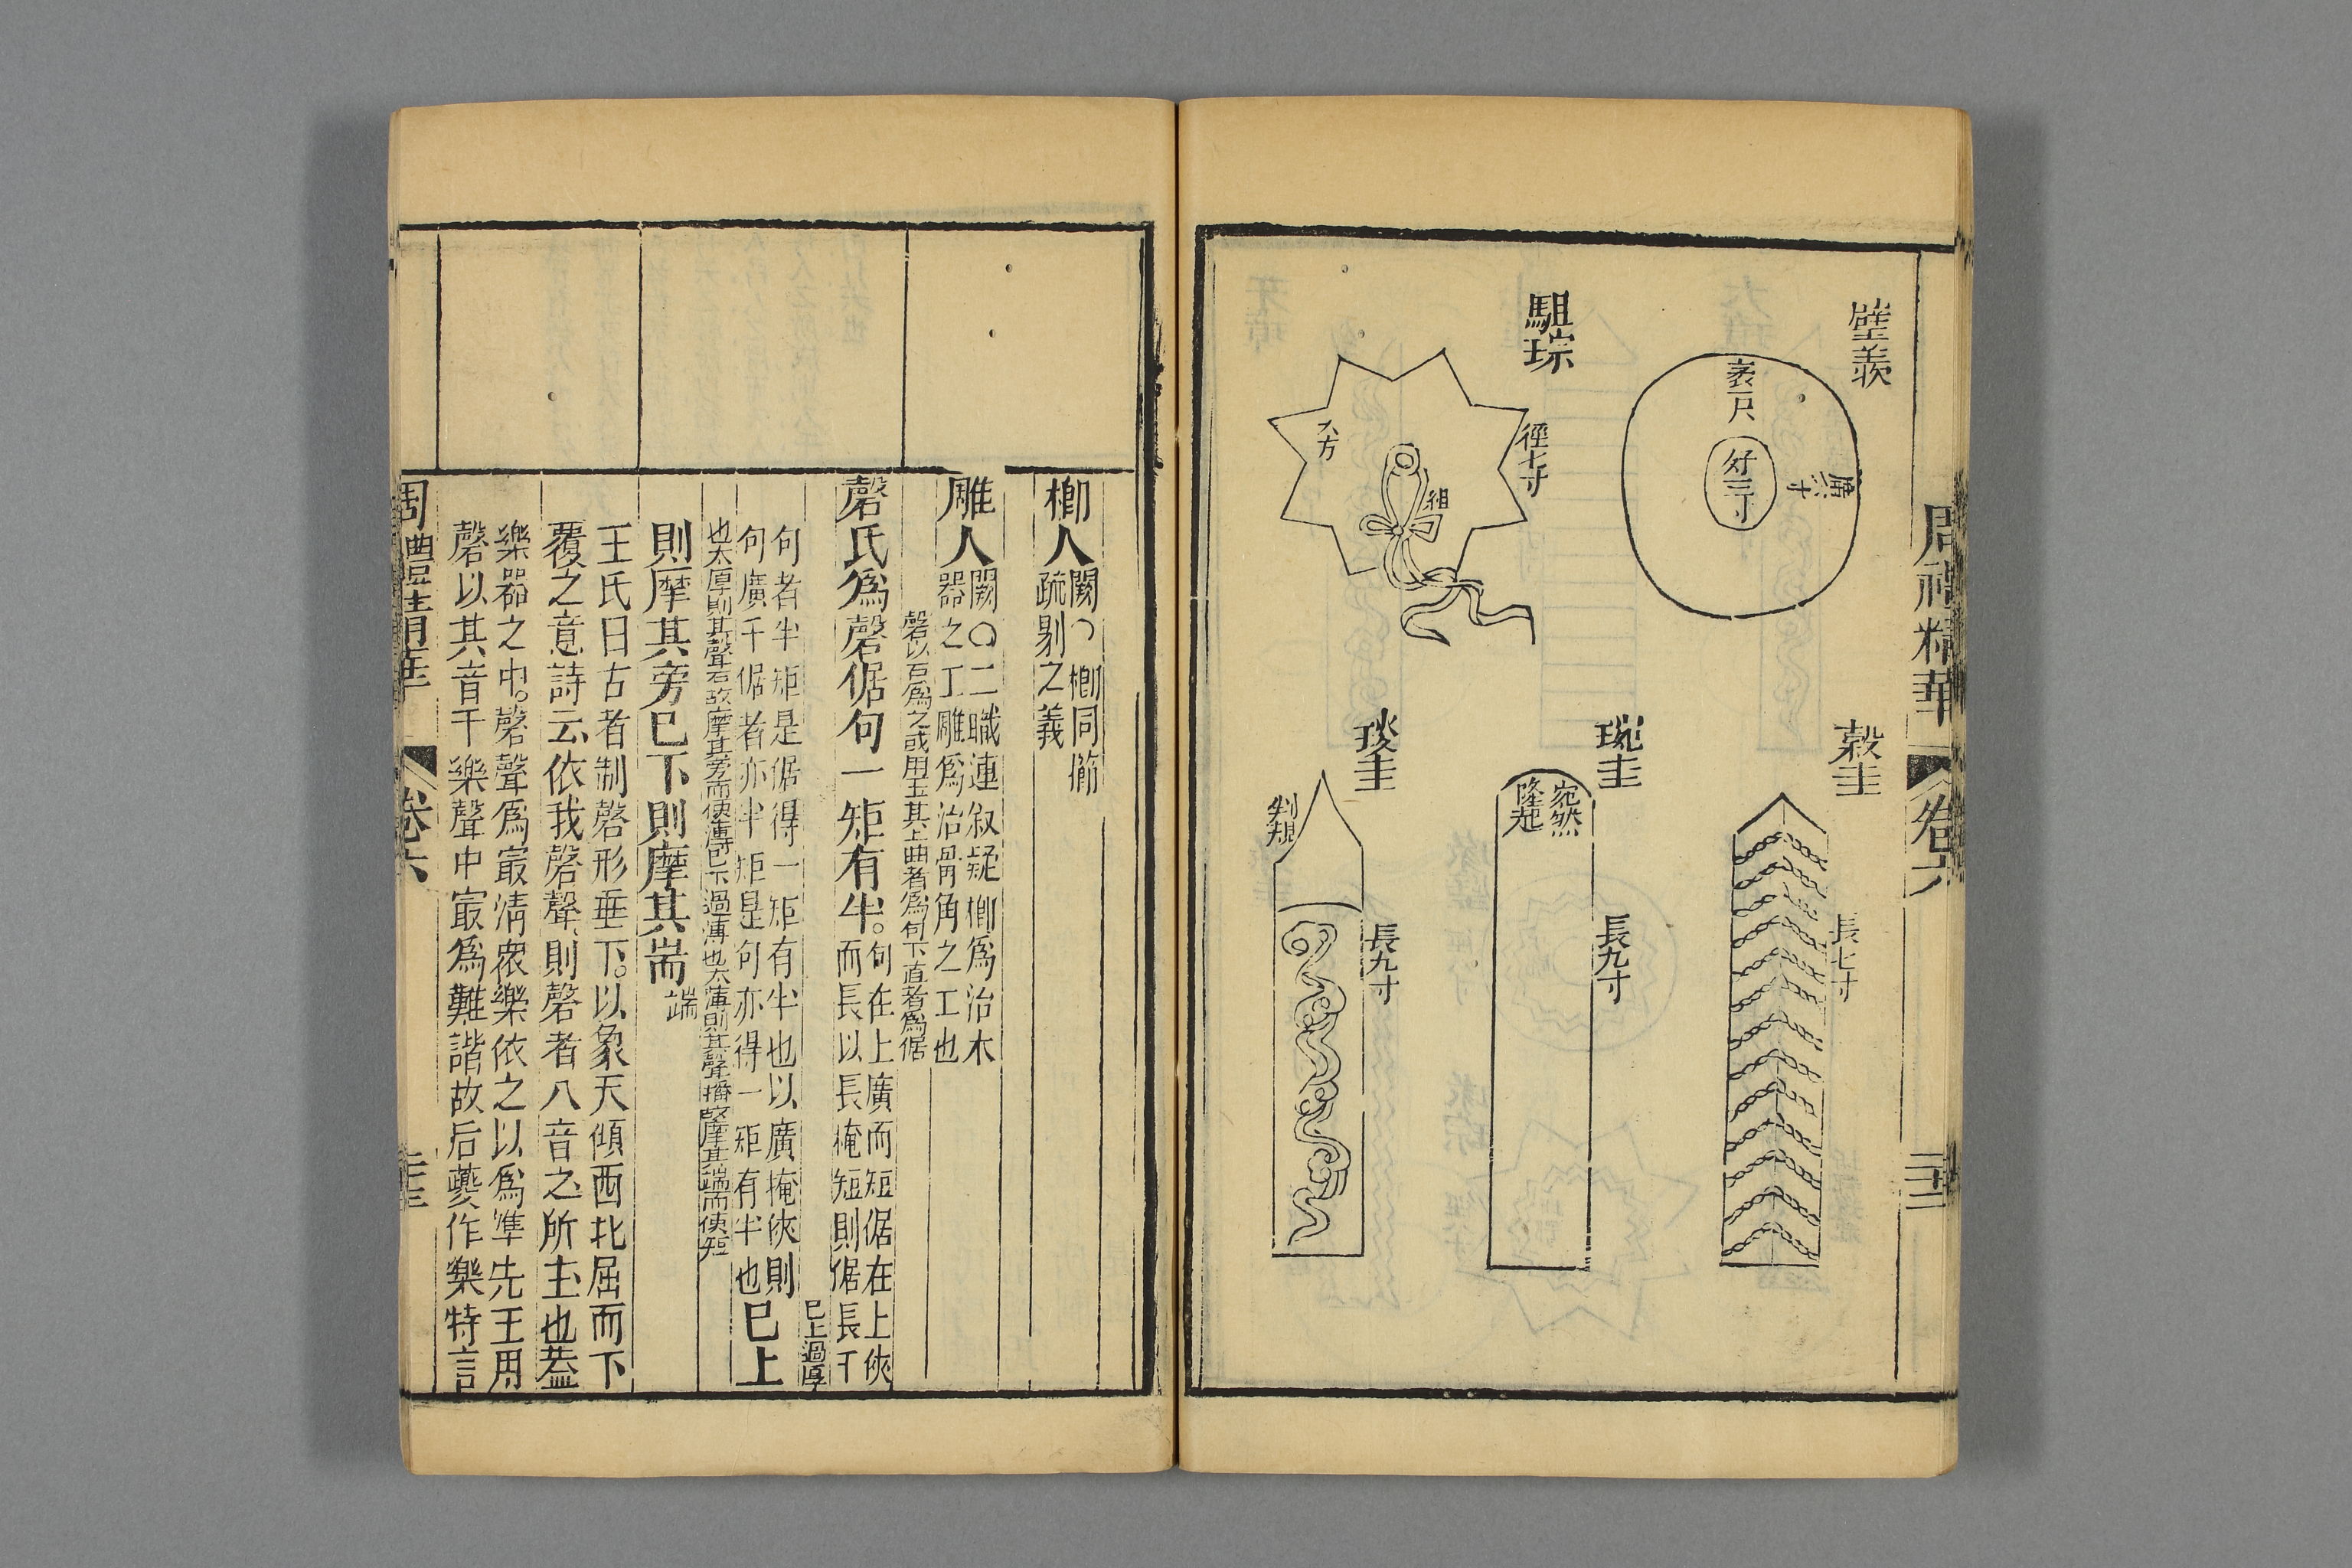 周禮精華
卷六
璧羨
袤尺
好三寸
廣八寸
駔琮
徑七寸
八方
組
穀圭
長七寸
琬圭
宛然
隆起
長九寸
琰圭
判規
長九寸
楖人闕○楖同櫛
疏剔之義
雕人闕○二職連叙疑楖為治木
器之工雕為治骨角之工也
磬以石為之或用玉其上曲者為句下直者為倨
磬氏為磬倨句一矩有半。句在上廣而短倨在上狹
而長以長掩短則倨長于
句者半矩是倨得一矩有半也以廣掩狹則
句廣于倨者亦半矩是句亦得一矩有半也
已上
已上過厚
也太厚則其聲石故摩其旁而使薄已下過薄也太薄則其聲播故摩其端而使短
則摩其旁已下則摩其耑
端
王氏曰古者制磬形垂下。以象天傾西北屈而下
覆之意詩云依我磬聲則磬者八音之所主也葢
樂器之中。磬聲為㝡清衆樂依之以為準先王用
磬以其音千樂聲中㝡為難諧故后夔作樂特言
周禮精華
卷六